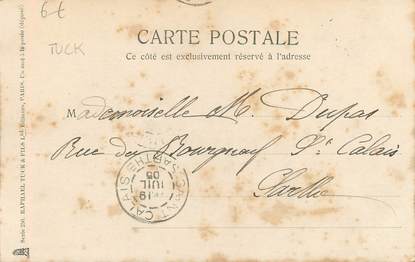 6€
TUCK
CARTE POSTALE
Ce côté est exclusivement réservé à l'adresse
Mademoiselle M. Dupas
Rue du Bourgneuf St Calais
Sarthe
SAINT-CALAIS
SARTHE
19
JUIL
05
Serie 250. RAPHAEL TUCK & FILS Ltd Editeurs, PARIS.